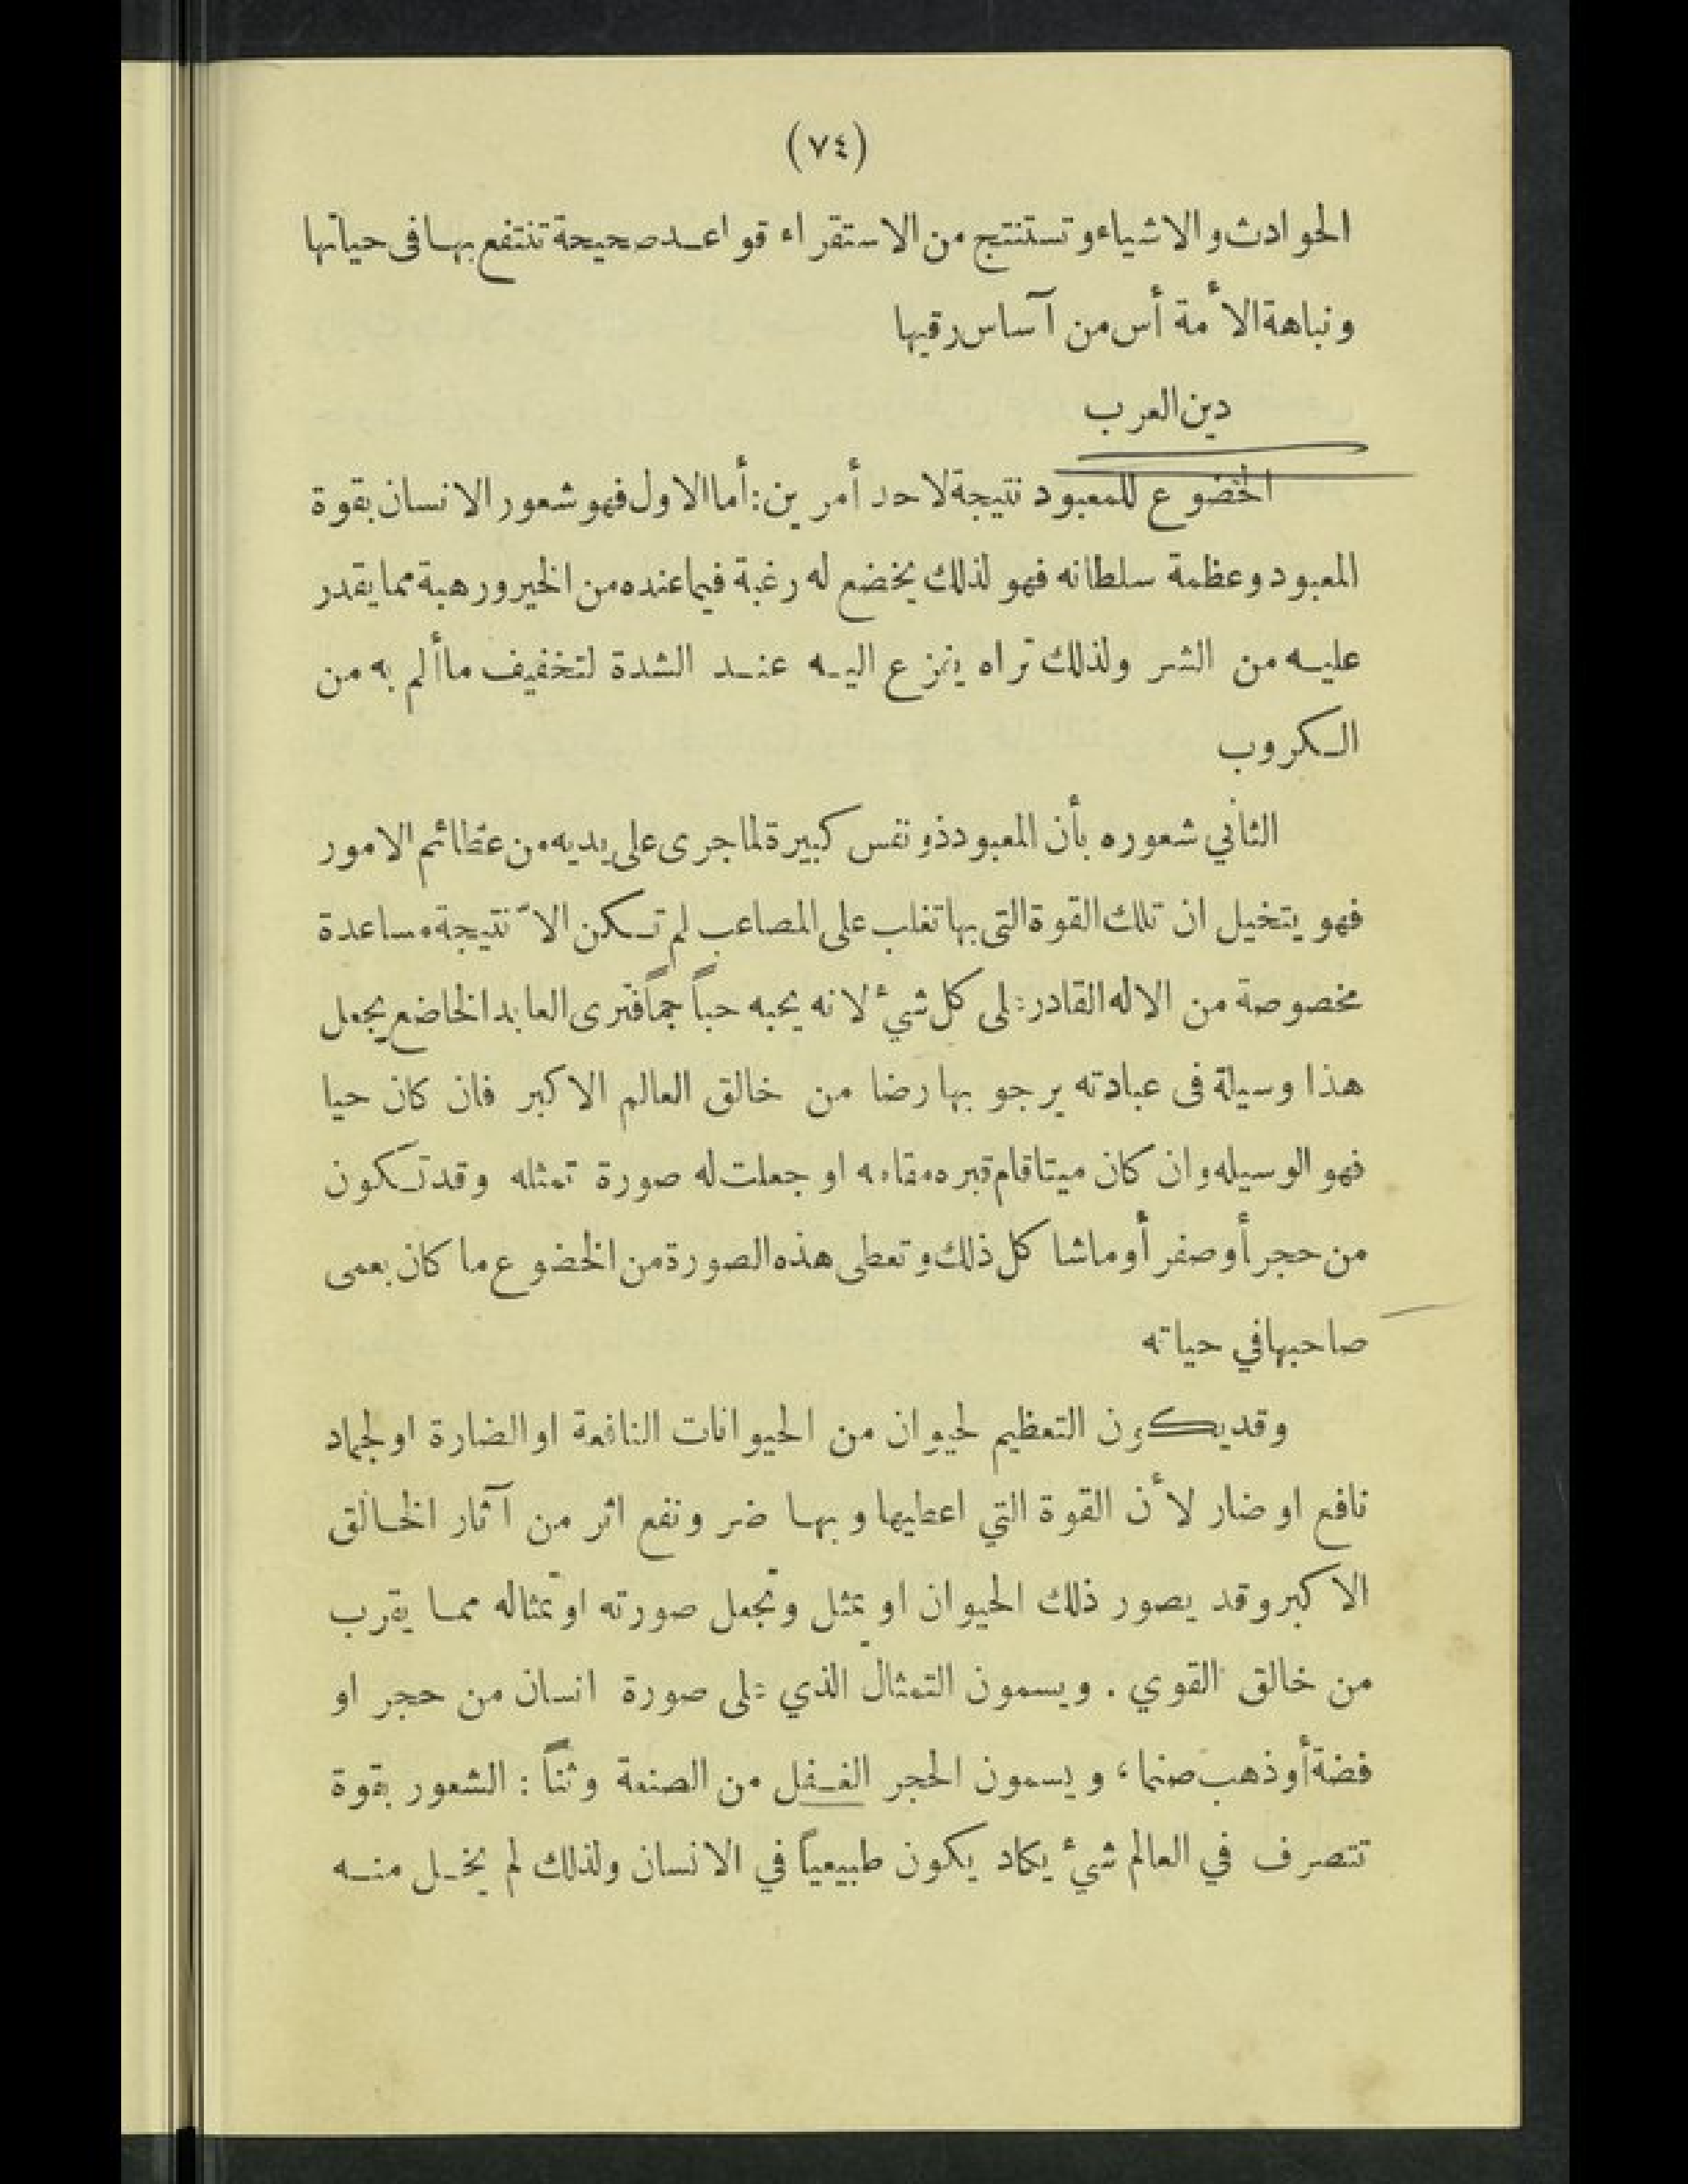 (٧٤)
الحوادث والاشياء وتستنتج من الاستقراء قواعد صحيحة تنتفع بها فى حياتها
ونباهة الأمة أس من آساس رقيها
دين العرب
الخضوع للمعبود نتيجة لاحد أمرين: أما الاول فهو شعور الانسان بقوة
المعبود وعظمة سلطانه فهو لذلك يخضع له رغبة فيما عنده من الخير ورهبة مما يقدر
عليه من الشر ولذلك تراه ينزع اليه عند الشدة لتخفيف ما ألم به من
الكروب
الثاني شعوره بأن المعبود ذو نفس كبيرة لما جرى على يديه من عظائم الامور
فهو يتخيل ان تلك القوة التى بها تغلب على المصاعب لم تكن الاّ نتيجة مساعدة
مخصوصة من الاله القادر على كل شيء لانه يحبه حباً جماً فترى العابد الخاضع يجعل
هذا وسيلة فى عبادته يرجو بها رضا من خالق العالم الاكبر فان كان حيا
فهو الوسيله وان كان ميتا قام قبره مقامه او جعلت له صورة تمثله وقد تكون
من حجر أو صفر أو ما شا كل ذلك وتعطى هذه الصورة من الخضوع ما كان يعمى
صاحبها في حياته
وقد يكون التعظيم لحيوان من الحيوانات النافعة او الضارة او لجماد
نافع او ضار لأن القوة التي اعطيها وبها ضر ونفع اثر من آثار الخالق
الاكبر وقد يصور ذلك الحيوان او يمثل وتجعل صورته او تمثاله مما يقرب
من خالق القوي . ويسمون التمثال الذي على صورة انسان من حجر او
فضة أو ذهب صنما، ويسمون الحجر الغفل من الصنعة وثناً : الشعور بقوة
تتصرف في العالم شيء يكاد يكون طبيعياً في الانسان ولذلك لم يخل منه